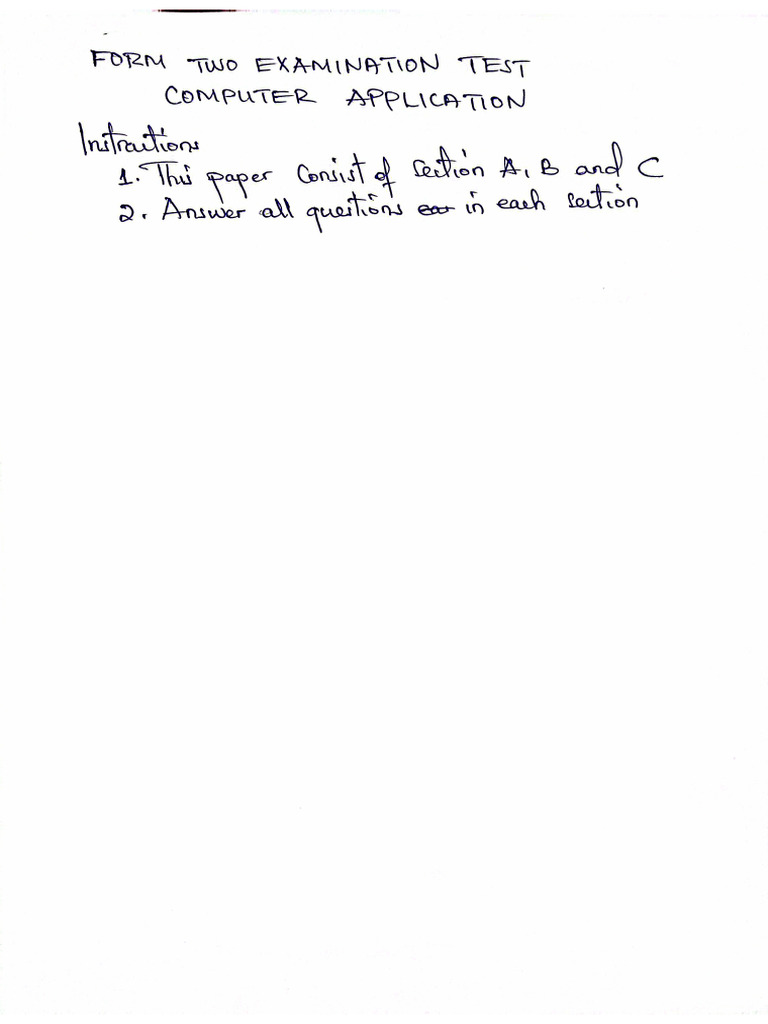 FORM TWO EXAMINATION TEST
COMPUTER APPLICATION
Instractions
1. This paper Consist of section A, B and C
2. Answer all questions ear in each section